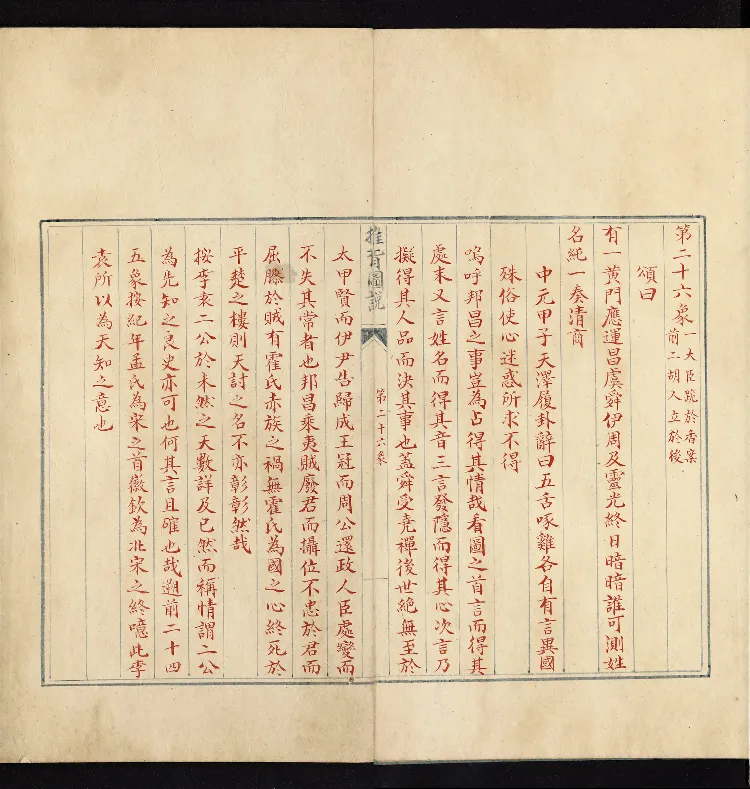 第二十六象 一大臣跪於香案前二胡人立於後
頌曰
有一黃門應運昌虞舜伊周及靈光終日暗暗誰可測姓
名純一奏清商
中元甲子天澤履卦辭曰五舌啄雞各自有言異國
殊俗使心迷惑所求不得
嗚呼邦昌之事豈為占得其情哉看圖之首言而得其
處末又言姓名而得其音三言發隱而得其心次言乃
擬得其人品而決其事也蓋舜受堯禪後世絕無至於
推背圖說
第二十六象
太甲賢而伊尹告歸成王冠而周公還政人臣處變而
不失其常者也邦昌乘夷賊廢君而攝位不忠於君而
屈膝於賊有霍氏赤族之禍無霍氏為國之心終死於
平楚之樓則天討之名不亦彰彰然哉
按李袁二公於未然之天數詳及已然而稱情謂二公
為先知之良史亦可也何其言且確也哉遡前二十四
五象按紀年孟氏為宋之首徽欽為北宋之終噫此李
袁所以為天知之意也